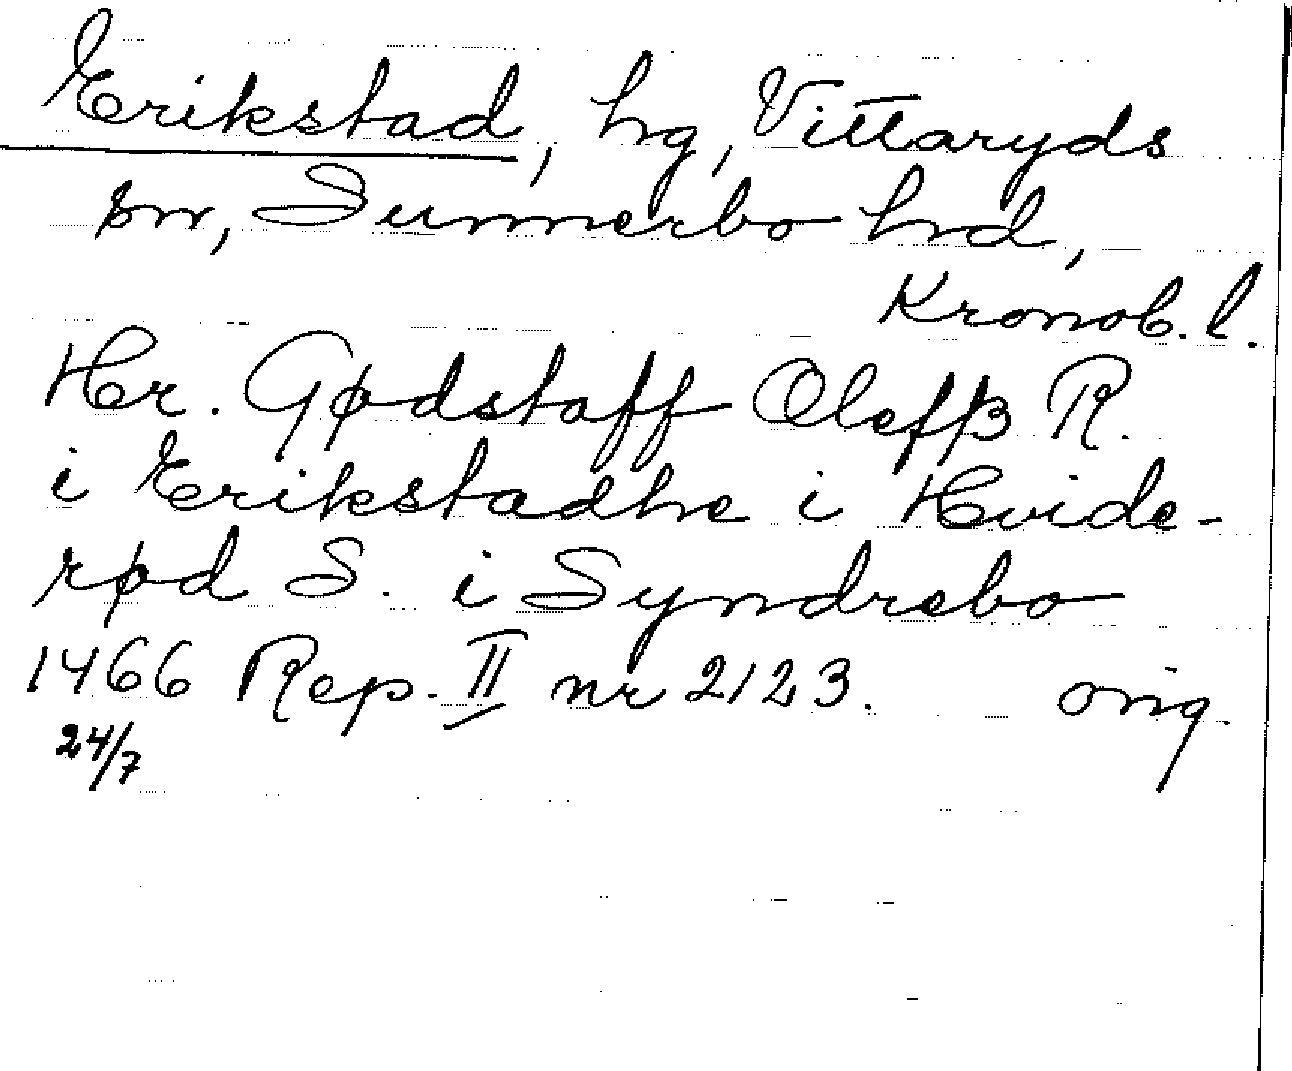 Erikstad, hg, Vittaryds
sn, Sunnerbo hrd,
Kronob. l.
Hr. Gødstaff Olefß R.
i Erikstadhe i Hvide-
rød S. i Syndrebo
1466 Rep. II nr 2123. orig.
24/7